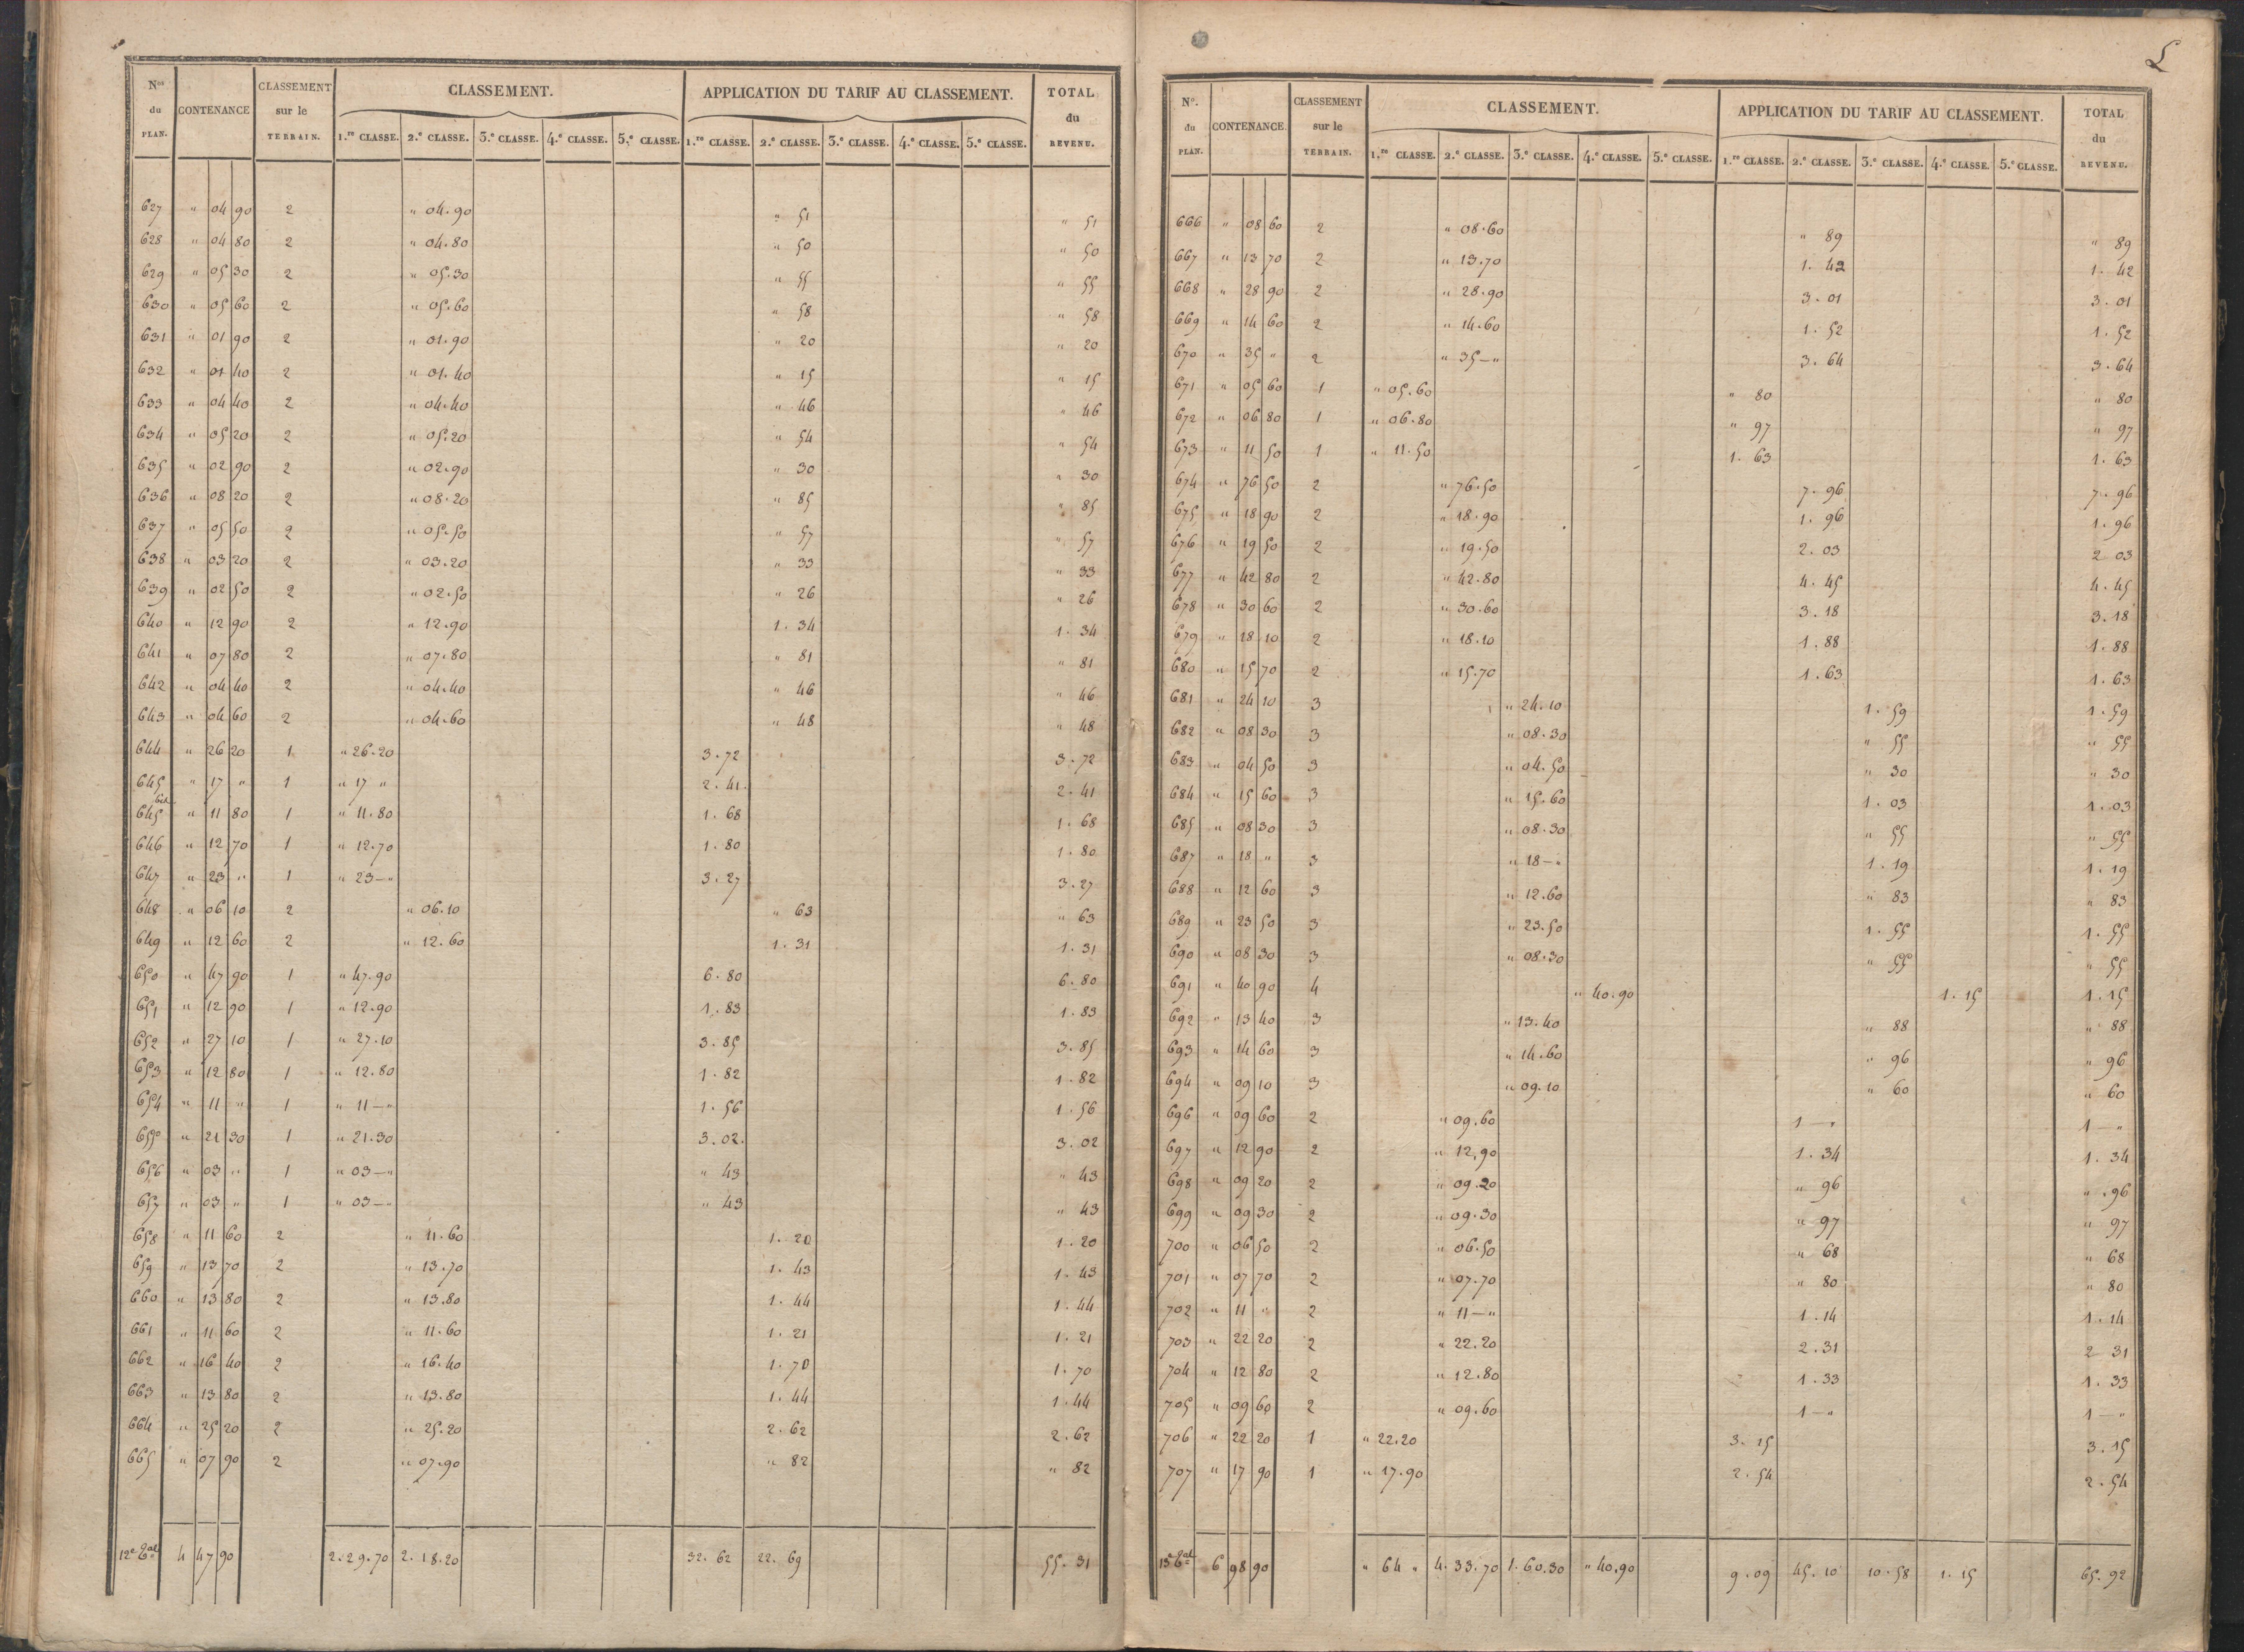 Nos du PLAN. CONTENANCE CLASSEMENT sur le TERRAIN. CLASSEMENT. APPLICATION DU TARIF AU CLASSEMENT. TOTAL du REVENU.
1.re CLASSE. 2.e CLASSE. 3.e CLASSE. 4.e CLASSE. 5.e CLASSE. 1.re CLASSE. 2.e CLASSE. 3.e CLASSE. 4.e CLASSE. 5.e CLASSE.
627 " 04 90 2 " 04.90 " 51 " 51
628 " 04 80 2 " 04.80 " 50 " 50
629 " 05 30 2 " 05.30 " 55 " 55
630 " 05 60 2 " 05.60 " 58 " 58
631 " 01 90 2 " 01.90 " 20 " 20
632 " 01 40 2 " 01.40 " 15 " 15
633 " 04 40 2 " 04.40 " 46 " 46
634 " 05 20 2 " 05.20 " 54 " 54
635 " 02 90 2 " 02.90 " 30 " 30
636 " 08 20 2 " 08.20 " 85 " 85
637 " 05 50 2 " 05.50 " 57 " 57
638 " 03 20 2 " 03.20 " 33 " 33
639 " 02 50 2 " 02.50 " 26 " 26
640 " 12 90 2 " 12.90 1. 34 1. 34
641 " 07 80 2 " 07.80 " 81 " 81
642 " 04 40 2 " 04.40 " 46 " 46
643 " 04 60 2 " 04.60 " 48 " 48
644 " 26 20 1 " 26.20 3.72 3.72
645 " 17 " 1 " 17 " 2.41. 2.41
645 bis " 11 80 1 " 11.80 1.68 1.68
646 " 12 70 1 " 12.70 1.80 1.80
647 " 23 " 1 " 23 — " 3.27 3.27
648 " 06 10 2 " 06.10 " 63 " 63
649 " 12 60 2 " 12.60 1.31 1.31
650 " 47 90 1 " 47.90 6.80 6.80
651 " 12 90 1 " 12.90 1.83 1.83
652 " 27 10 1 " 27.10 3.85 3.85
653 " 12 80 1 " 12.80 1.82 1.82
654 " 11 " 1 " 11 — " 1.56 1.56
655 " 21 30 1 " 21.30 3.02. 3.02
656 " 03 " 1 " 03 — " " 43 " 43
657 " 03 " 1 " 03 — " " 43 " 43
658 " 11 60 2 " 11.60 1.20 1.20
659 " 13 70 2 " 13.70 1.43 1.43
660 " 13 80 2 " 13.80 1.44 1.44
661 " 11 60 2 " 11.60 1.21 1.21
662 " 16 40 2 " 16.40 1.70 1.70
663 " 13 80 2 " 13.80 1.44 1.44
664 " 25 20 2 " 25.20 2.62 2.62
665 " 07 90 2 " 07.90 " 82 " 82
12e 4 47 90 2.29.70 2.18.20 32. 62 22. 69 55.31
L
No. du PLAN. CONTENANCE CLASSEMENT sur le TERRAIN. CLASSEMENT. APPLICATION DU TARIF AU CLASSEMENT. TOTAL du REVENU.
1.re CLASSE. 2.e CLASSE. 3.e CLASSE. 4.e CLASSE. 5.e CLASSE. 1.re CLASSE. 2.e CLASSE. 3.e CLASSE. 4.e CLASSE. 5.e CLASSE.
666 " 08 60 2 " 08.60 " 89 " 89
667 " 13 70 2 " 13.70 1. 42 1. 42
668 " 28 90 2 " 28.90 3.01 3.01
669 " 14 60 2 " 14.60 1.52 1.52
670 " 35 " 2 " 35 — " 3.64 3.64
671 " 05 60 1 " 05.60 " 80 " 80
672 " 06 80 1 " 06.80 " 97 " 97
673 " 11 50 1 " 11.50 1. 63 1.63
674 " 76 50 2 " 76.50 7.96 7.96
675 " 18 90 2 " 18.90 1.96 1.96
676 " 19 50 2 " 19.50 2.03 2 03
677 " 42 80 2 " 42.80 4.45 4.45
678 " 30 60 2 " 30.60 3.18 3.18
679 " 18 10 2 " 18.10 1.88 1.88
680 " 15 70 2 " 15.70 1.63 1.63
681 " 24 10 3 " 24.10 1.59 1.59
682 " 08 30 3 " 08.30 " 55 " 55
683 " 04 50 3 " 04.50 " 30 " 30
684 " 15 60 3 " 15.60 1.03 1.03
685 " 08 30 3 " 08.30 " 55 " 55
687 " 18 " 3 " 18 — " 1.19 1.19
688 " 12 60 3 " 12.60 " 83 " 83
689 " 23 50 3 " 23.50 1.55 1.55
690 " 08 30 3 " 08.30 " 55 " 55
691 " 40 90 4 " 40.90 1.15 1.15
692 " 13 40 3 " 13.40 " 88 " 88
693 " 14 60 3 " 14.60 " 96 " 96
694 " 09 10 3 " 09.10 " 60 " 60
696 " 09 60 2 " 09.60 1 — " 1 — "
697 " 12 90 2 " 12,90 1.34 1.34
698 " 09 20 2 " 09.20 " 96 " .96
699 " 09 30 2 " 09.30 " 97 " 97
700 " 06 50 2 " 06.50 " 68 " 68
701 " 07 70 2 " 07.70 " 80 " 80
702 " 11 " 2 " 11 — " 1.14 1.14
703 " 22 20 2 " 22.20 2.31 2 31
704 " 12 80 2 " 12.80 1.33 1.33
705 " 09 60 2 " 09.60 1 — " 1 — "
706 " 22 20 1 " 22.20 3.15 3.15
707 " 17 90 1 " 17.90 2.54 2.54
13e 6 98 90 " 64 " 4.33.70 1.60.30 " 40,90 9.09 45.10 10.58 1.15 65.92